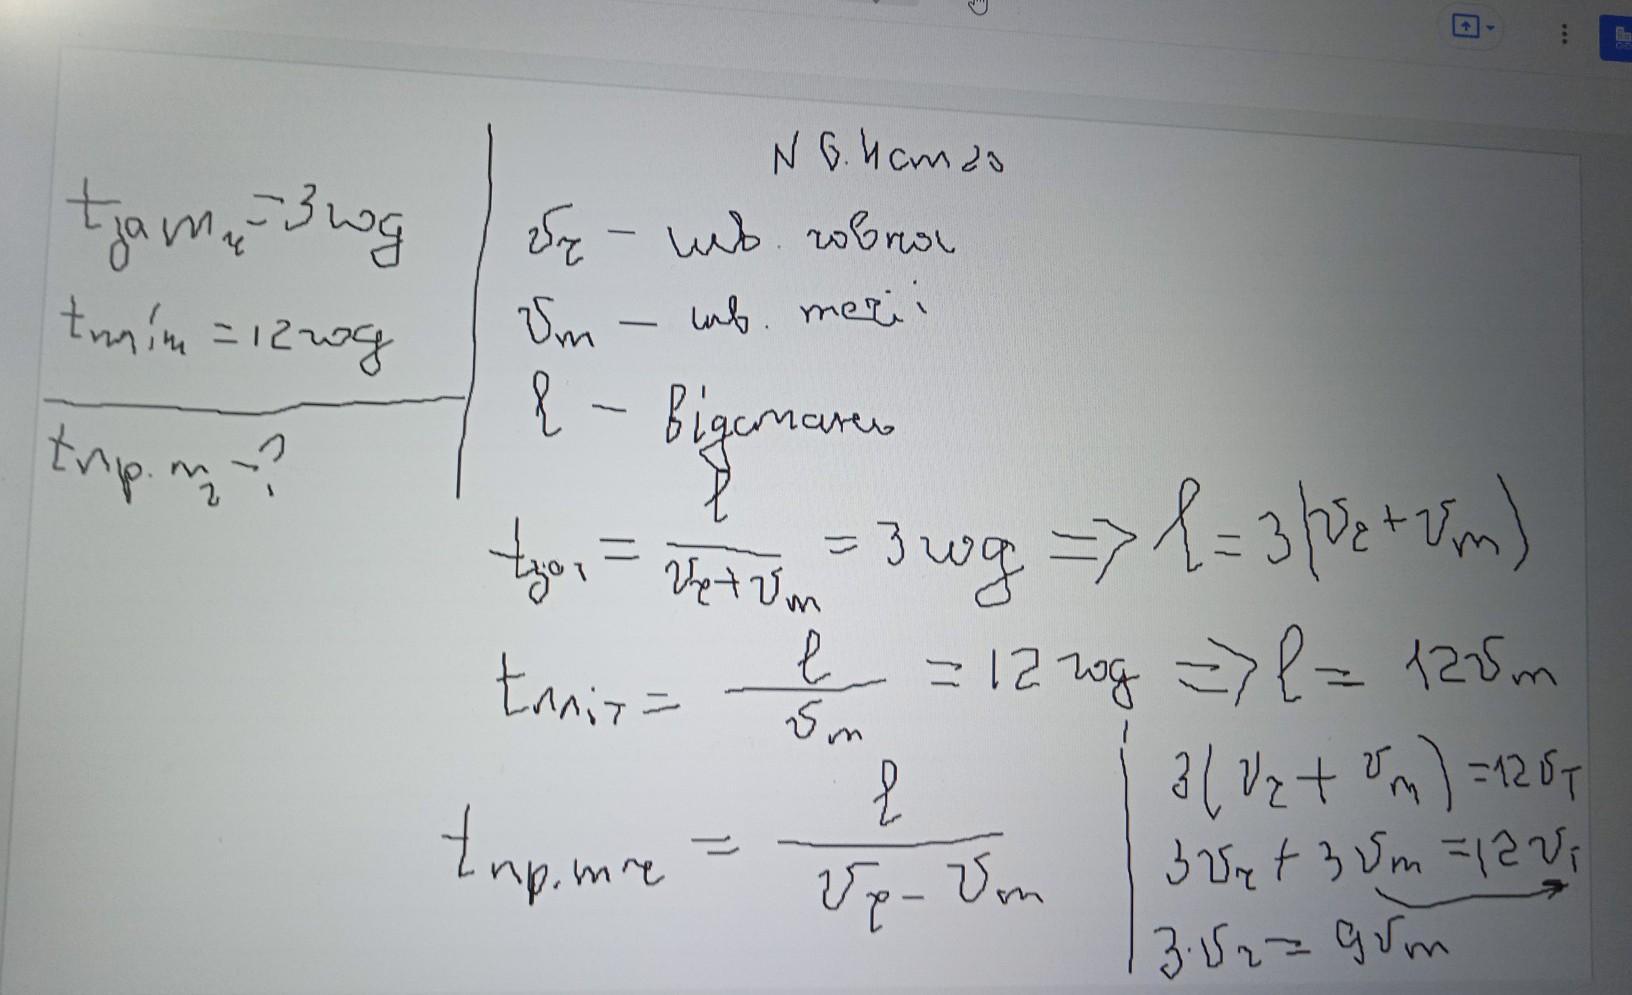 t за т ч = 3 год
t пліт = 12 год
t пр. т ч - ?
vч - шв. човна
vт - шв. течії
l - відстань
t за т = l / (vч + vт) = 3 год => l = 3(vч + vт)
t пліт = l / vт = 12 год => l = 12vт
t пр. т ч = l / (vч - vт)
3(vч + vт) = 12vт
3vч + 3vт = 12vт
3·vч = 9vт